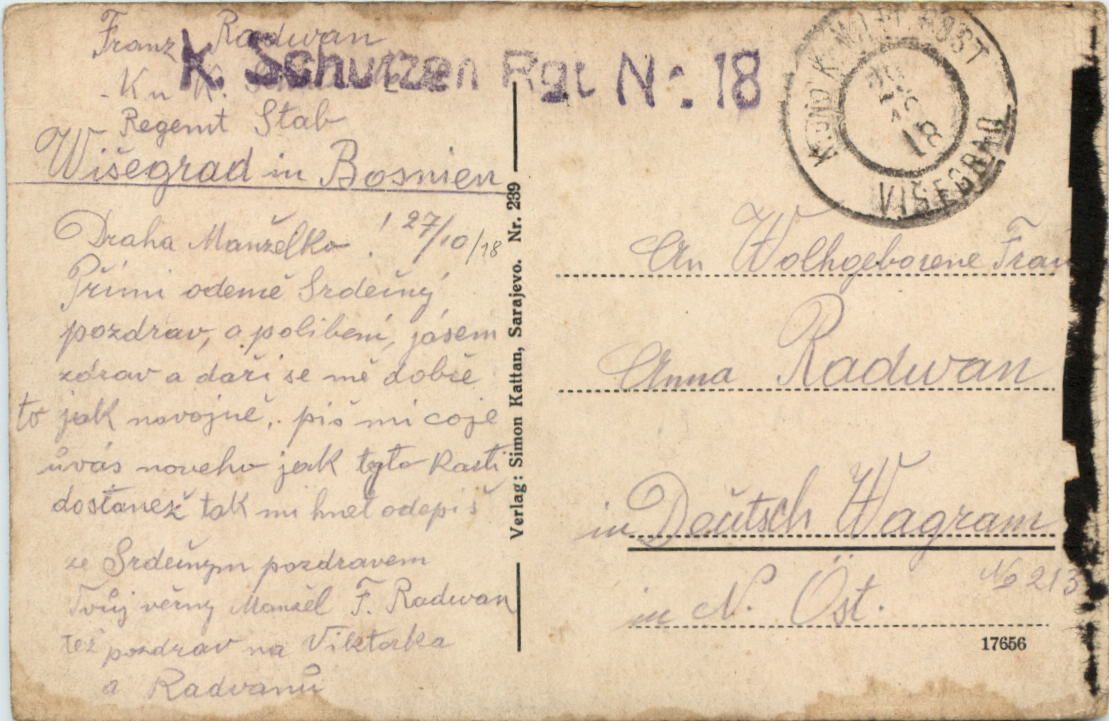 Franz Radwan
K. Schützen Rgt. Nr. 18
K u K.
Regemt Stab
Wišegrad in Bosnien
Draha Manželko! 27/10/18
Přimi odemě Srdečný
pozdrav, a polibeni, jásem
zdrav a daři se mě dobře
to jak navojně, piš mi coje
ůvás noveho jak tyto Karti
dostanež tak mi hnet odepiš
ze Srdečnym pozdravem
Tvůj věrny Manžel F. Radwan
též pozdrav na Viktorka
a Radvanů
Verlag: Simon Kattan, Sarajevo. Nr. 239
K UND K MILIT. POST
18
VIŠEGRAD
An Wolhgeborene Frau
Anna Radwan
in Deutsch Wagram
in N. Öst. No 213
17656